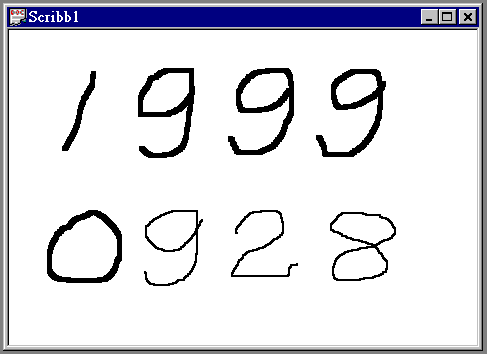 Scribb1
1999
0928